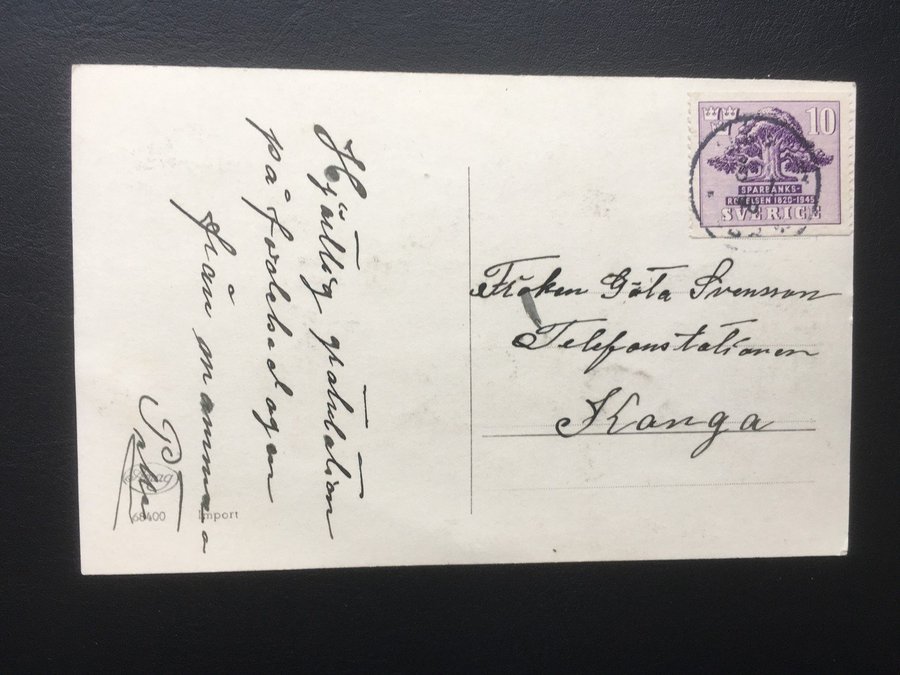 Hjärtlig gratulation
på födelsedagen
från mamma
10
SPARBANKS-
RÖRELSEN 1820-1945
SVERIGE
Fröken Göta Svensson
Telefonstationen
Kanga
68400
Import